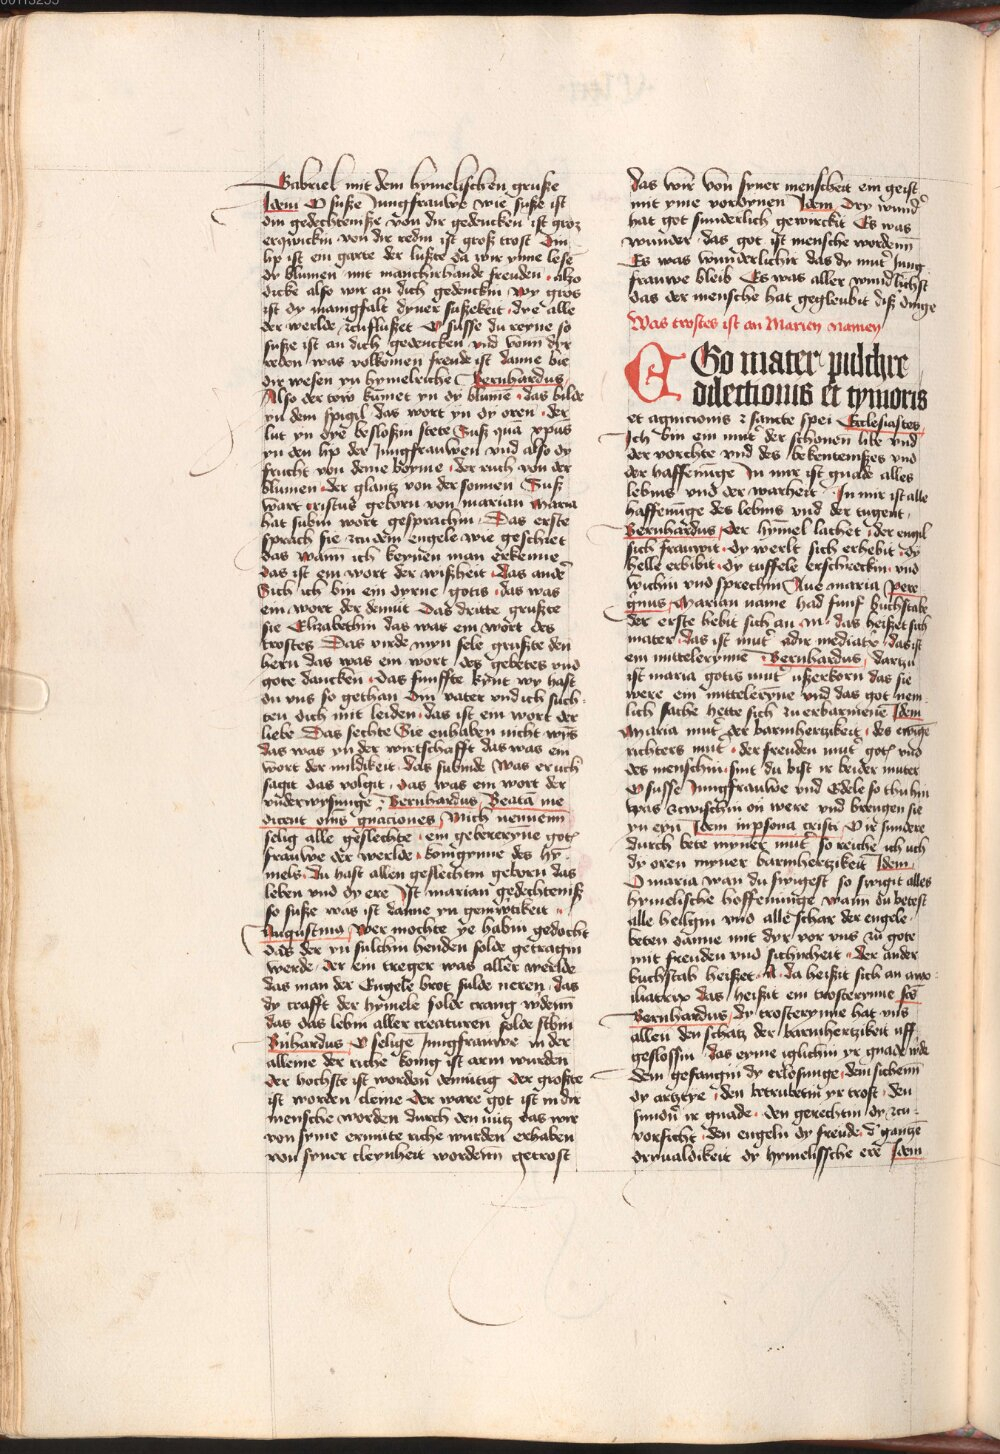 Gabriel mit dem hymelischen gruße
Idem O suße Jungfrauwe wie suße ist
din gedechteniße von dir gedencken ist groz
erquickin von dir redin ist groß trost Din
lip ist ein garte der luste da wir ynne lesē
dy blumen mit manchirhande freuden also
dicke also wir an dich gedenckin wy gros
ist dy manigfalt dyner sußekeit dye alle
der werlde zcuflußet O susse du reyne so
suße ist an dich gedencken vnd vonn dir
reden was volkomen freude ist danne bie
dir wesen yn hymelriche Bernhardus
Also der tow kumet yn dy blumē das bilde
yn dem spigil das wort yn dy oren der
lut yn dye besloßin stete Suß quā xpus
yn den lip der Jungfrauwen vnd also dy
frucht von deme boyme der ruch von der
blumen der glantz von der sonnen Suß
wart cristus geborn von marian Maria
hat subin wort gesprachin Das erste
sprach sie zcu dem engele wie geschiet
das wann ich keynen man erkenne
das ist ein wort der wißheit Das andē
Sich ich bin ein dyrne gotis das was
ein wort der demut Das dritte grußte
sie Elizabethin das was ein wort des
trostes Das virde myn sele grußte den
hern das was ein wort des gebetes vnd
gote dancken Das funffte kynt wy hast
du vns so gethan Din vater vnd ich such-
ten dich mit leiden das ist ein wort der
liebe Das sechte Sie enhaben nicht wyns
das was yn der wirtschafft das was ein
wort der mildikeit das subinde Was er uch
sagit das volgit das was ein wort der
vnderwysunge Bernhardus Beata me
dicent oms gnaciones Mich nennenn
selig alle geslechte ein gebereryne gotz
frauwe der werlde konigynne des hy-
mels du hast allen geslechtin geborn das
leben vnd dy ere Ist marian gedechteniß
so suße was ist danne yn
Augustinus Wer mochte ye habin gedocht
das der yn sulchin henden solde getragin
werde der ein treger was aller werlde
das man der Engele brot sulde neren das
dy crafft der hymele solde crang werdenn
das das lebin aller creaturen solde sterbin
Bnhardus O selige Jungfrauwe in der
alleine der riche konig ist arm wurden
der hochste ist worden demutig der großte
ist worden cleine der ware got ist in dir
mensche worden durch den nutz das wir
von syme ermute riche wurden erhaben
von syner cleynheit wordenn getrost
das wir von syner menscheit ein geist
mit yme vorbynen Idem Dry wund
hat got sunderlich gewirckit Es was
wunder das got ist mensche wordenn
Es was wunderlichir das dy mut Jung
frauwe bleib Es was aller wundlichst
das der mensche hat gegleubit diß dinge
Was trostes ist an Marien namen
EGo mater pulchre
dilectionis et tymoris
et agnicionis z sancte spei Ecclesiastes
Ich bin ein mut der schonen libe vnd
der vorchte vnd des bekentenißes vnd
der haffenunge In mir ist gnade alles
lebins vnd der warheit In mir ist alle
haffenunge des lebins vnd der tugent
Bernhardus Der hymel lachet der engil
sich frauwit dy werlt sich erhebit dy
helle erbibit dy tuffele erschreckin vnd
sprechin Aue maria Pere
grinus Marian name had funf buchstabe
der erste hebit sich an m das heißet sich
mater das ist mut adir mediatx das ist
ein mittelerynne Bernhardus dartzu
ist maria gotis mut ußerkorn das sie
were ein mitteleryne vnd das got nem
lich sache hette sich zu erbarmene Idem
Maria mut der barmhertzikeit des ewige
richters mut der freuden mut gotz vnd
des menschin sint du bist ir beider muter
O susse Jungfrauwe vnd Edele so thu hin
was zcwischin on were vnd brengen sie
yn eyn Idem in psona cristi O ir sundere
durch bete myner mut so reiche ich uch
dy oren myner barmhertzikeit Idem
O maria wan du swigest so swigit alles
hymelische hoffeninge wann du betest
alle heiligin vnd alle schar der engele
beten danne mit dyr vor vns zu gote
mit freuden vnd sichirheit Der ander
buchstab heißet A da heißit sich an auxi
liatrix das heißit ein trosterynne scē
Bernhardus dy trosterynne hat vns
allen den schatz der barmhertzikeit uff
geslossin das eyme iglichin yr gnade wde
dem gefangin dy erlosunge dem sichenn
dy artztye den betrubetin yr trost den
sundn ir gnade den gerechtin dy zcu-
vorsicht den engeln dy freude d gantzē
dryualdikeit dy hymelissche ere Idem